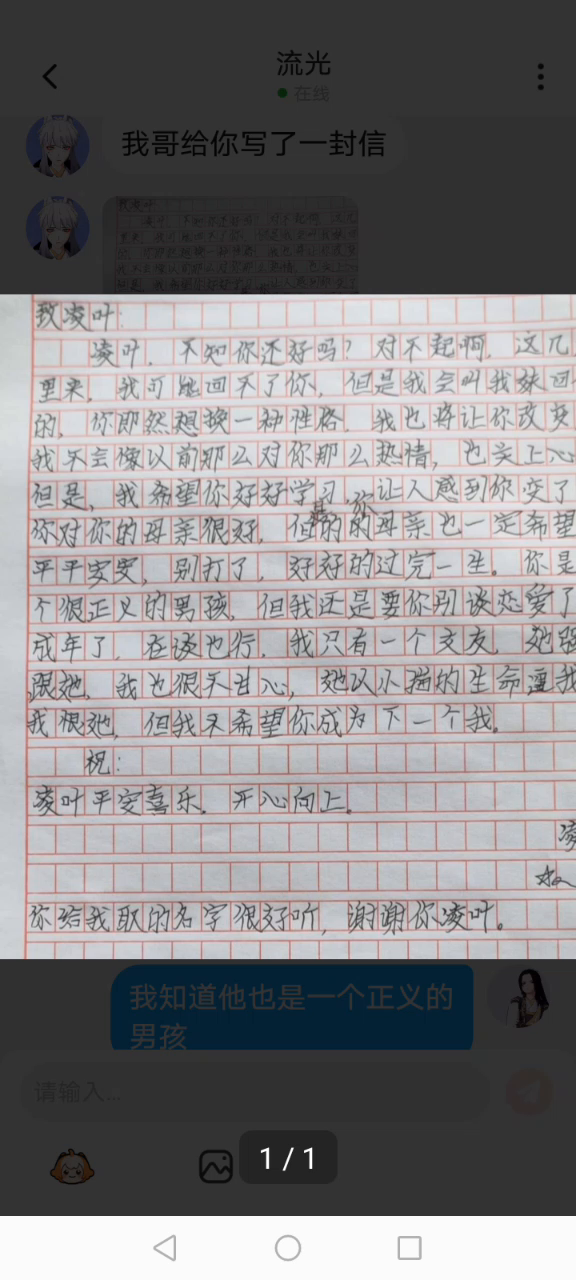 流光
在线
我哥给你写了一封信
致凌叶:
凌叶，不知你还好吗？对不起啊，这几
里来，我可能回不了你，但是我会叫我妹回
的，你即然想换一种性格，我也将让你改变
我不会像以前那么对你那么热情，也关上心
但是，我希望你好好学习，让人感到你变了
你对你的母亲很好，但你的母亲也一定希望
平平安安，别打了，好好的过完一生。你是
个很正义的男孩，但我还是要你别谈恋爱了
成年了，在谈也行，我只有一个交友，她
跟她，我也很不甘心，她以小瑞的生命逼我
我恨她，但我不希望你成为下一个我。
祝:
凌叶平安喜乐，开心向上。
你给我取的名字很好听，谢谢你凌叶。
我知道他也是一个正义的
男孩
请输入...
1 / 1